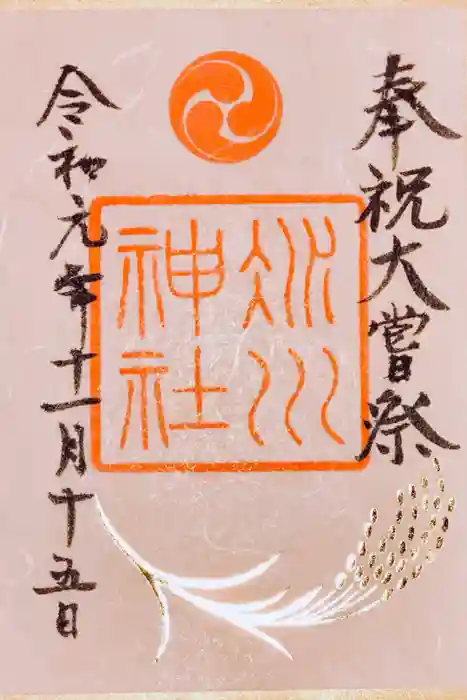 奉祝大嘗祭
冰川
神社
令和元年十一月十五日